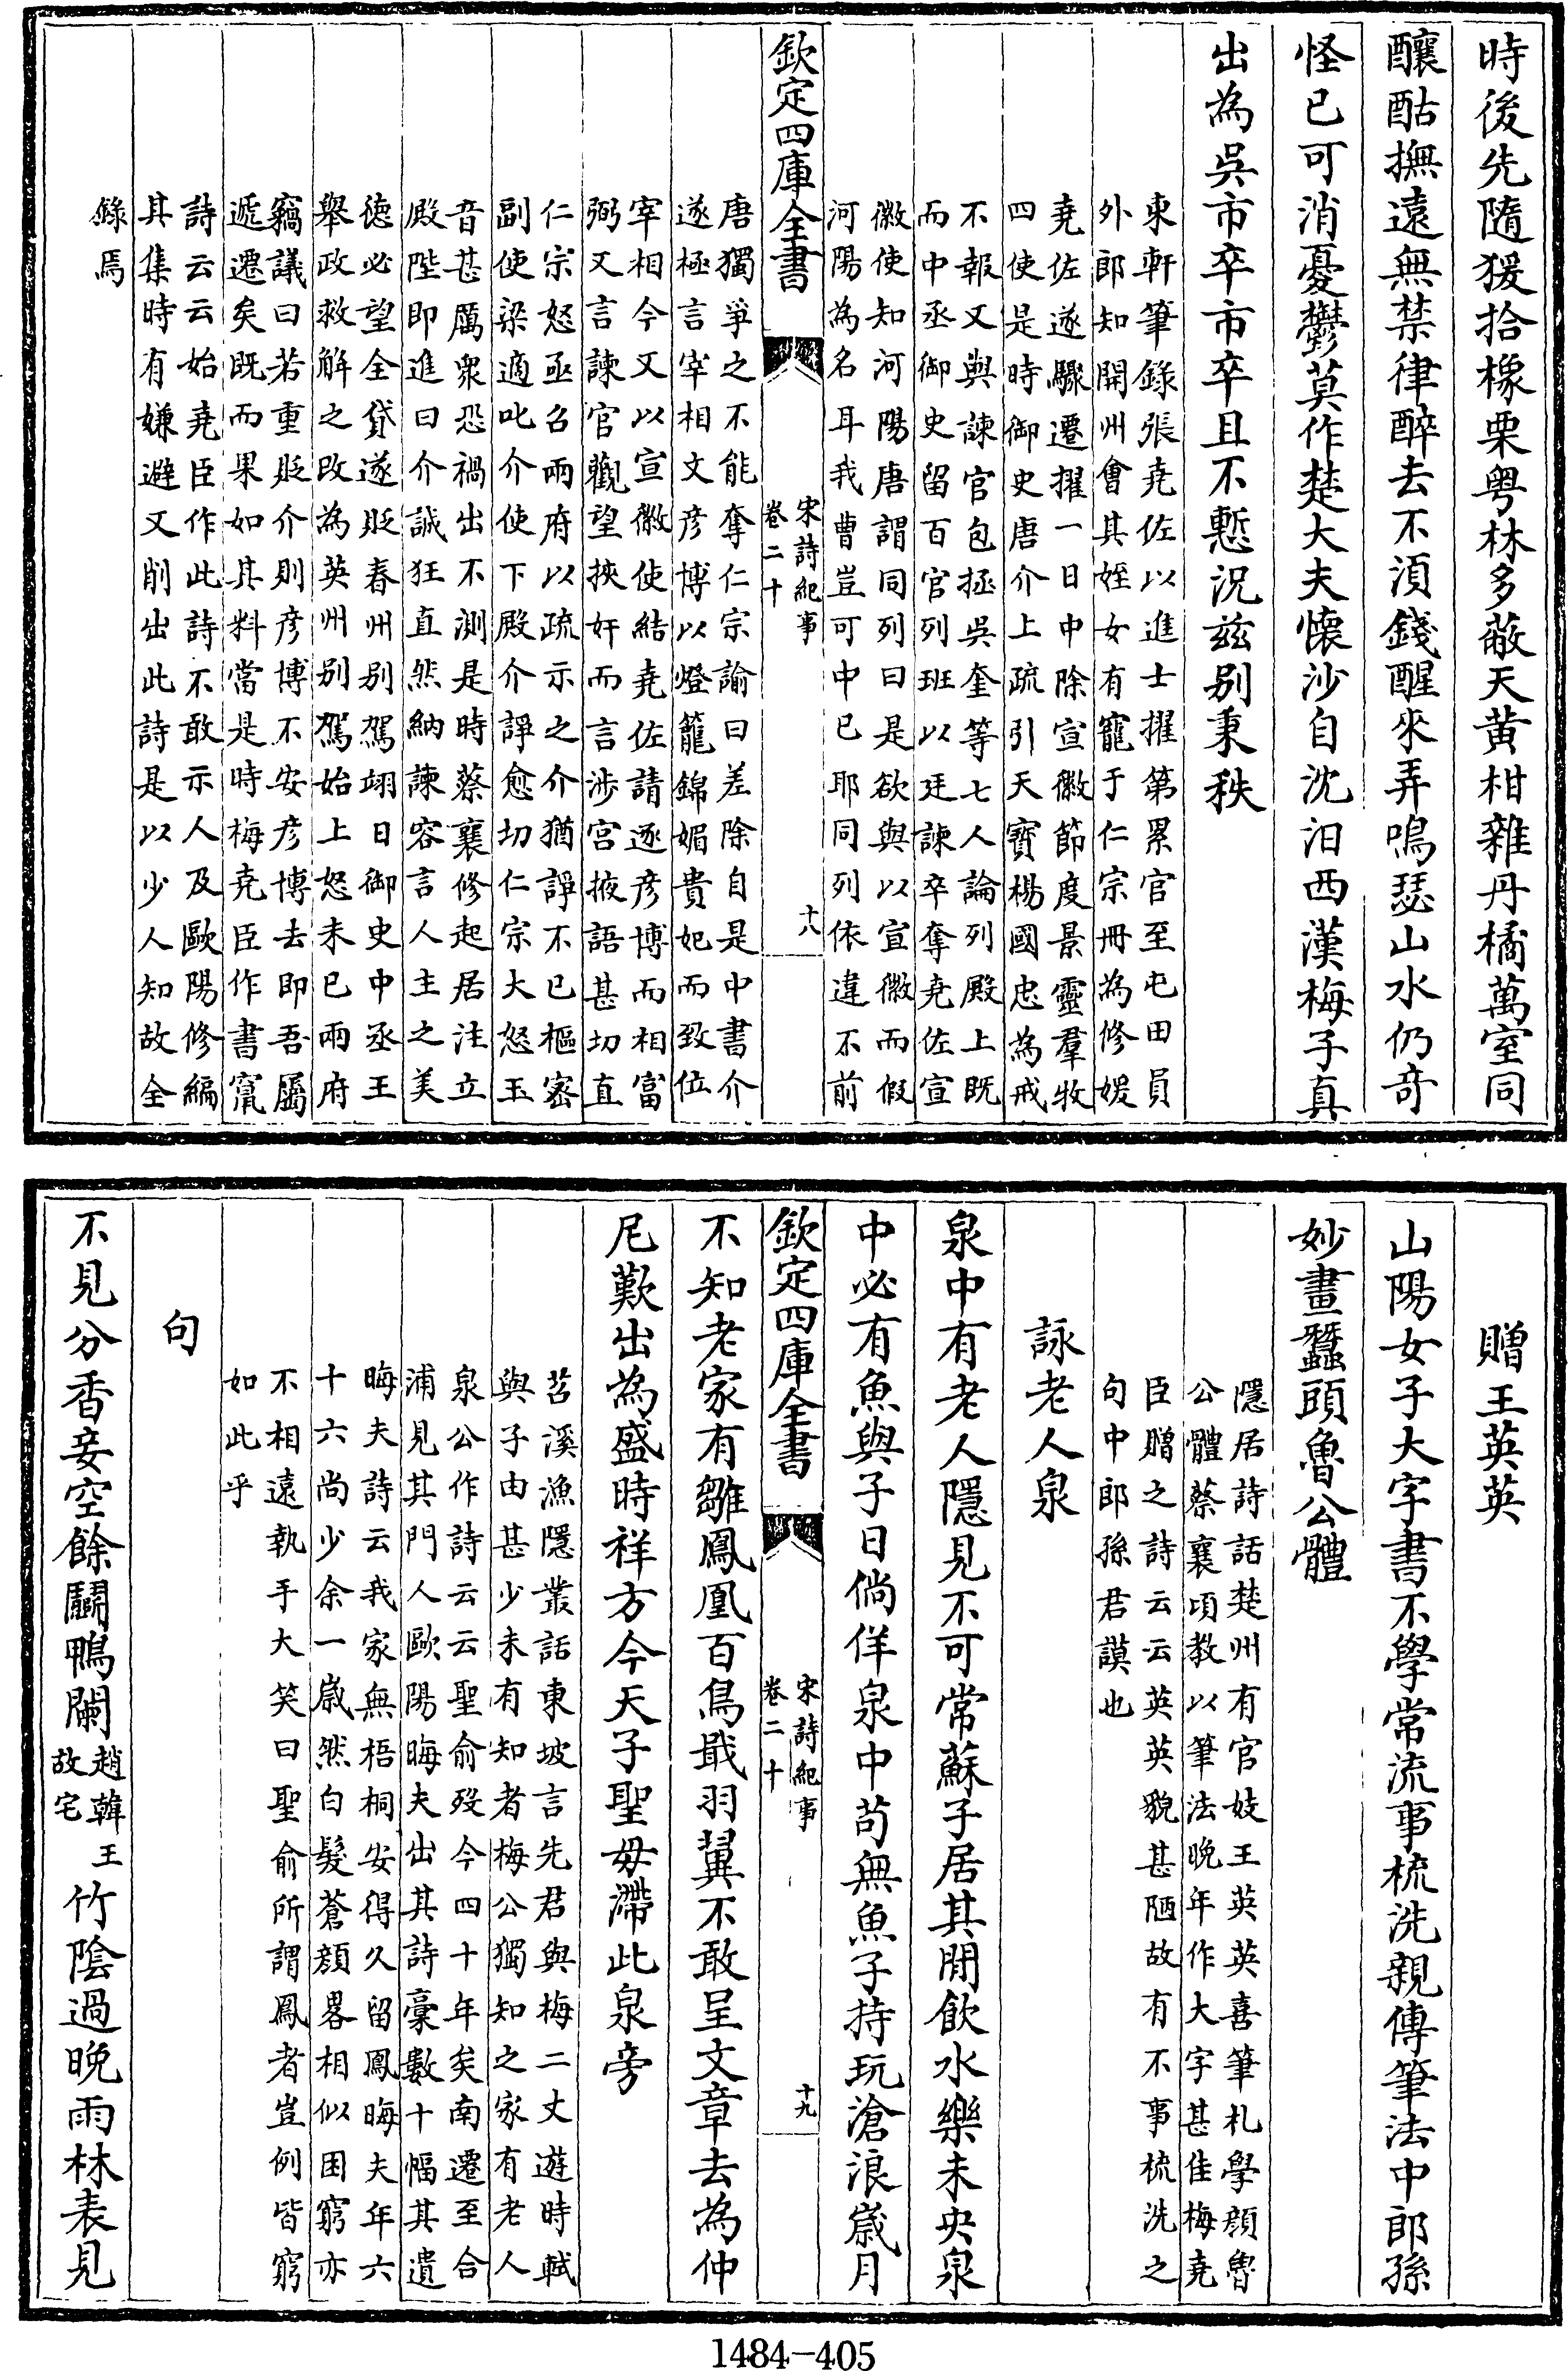 時後先隨猨拾橡栗粤林多蔽天黄柑雜丹橘萬室同
釀酤撫遠無禁律醉去不湏錢醒來弄鳴瑟山水仍奇
怪已可消憂鬱莫作楚大夫懐沙自沈汨西漢梅子真
出為吳市卒市卒且不慙況兹别秉秩
東軒筆錄張堯佐以進士擢第累官至屯田員
外郎知開州會其姪女有寵于仁宗冊為修媛
堯佐遂驟遷擢一日中除宣徽節度景靈羣牧
四使是時御史唐介上疏引天寶楊國忠為戒
不報又與諫官包拯吳奎等七人論列殿上既
而中丞御史留百官列班以廷諫卒奪堯佐宣
徽使知河陽唐謂同列曰是欲與以宣徽而假
河陽為名耳我曹豈可中已耶同列依違不前
欽定四庫全書
宋詩紀事
卷二十
十八
唐獨爭之不能奪仁宗諭曰差除自是中書介
遂極言宰相文彦博以燈籠錦媚貴妃而致位
宰相今又以宣徽使結堯佐請逐彦博而相富
弼又言諫官觀望挾奸而言涉宫掖語甚切直
仁宗怒亟召兩府以疏示之介猶諍不已樞宻
副使梁適叱介使下殿介諍愈切仁宗大怒玉
音甚厲衆恐禍出不測是時蔡襄修起居注立
殿陛即進曰介誠狂直然納諫容言人主之美
徳必望全貸遂貶春州别駕翊日御史中丞王
舉政救解之改為英州别駕始上怒未已兩府
竊議曰若重貶介則彦博不安彦博去即吾屬
遞遷矣既而果如其料當是時梅堯臣作書竄
詩云云始堯臣作此詩不敢示人及歐陽修編
其集時有嫌避又削出此詩是以少人知故全
錄焉
贈王英英
山陽女子大字書不學常流事梳洗親傳筆法中郎孫
妙畫蠶頭魯公體
隱居詩話楚州有官妓王英英喜筆札學顔魯
公體蔡襄項教以筆法晚年作大字甚佳梅堯
臣贈之詩云云英英貌甚陋故有不事梳洗之
句中郎孫君謨也
詠老人泉
泉中有老人隱見不可常蘇子居其閒飲水樂未央泉
中必有魚與子日倘佯泉中苟無魚子持玩滄浪嵗月
欽定四庫全書
宋詩紀事
卷二十
十九
不知老家有雛鳳凰百鳥戢羽翼不敢呈文章去為仲
尼歎出為盛時祥方今天子聖毋滯此泉旁
苕溪漁隱叢話東坡言先君與梅二丈遊時軾
與子由甚少未有知者梅公獨知之家有老人
泉公作詩云云聖俞殁今四十年矣南遷至合
浦見其門人歐陽晦夫出其詩稾數十幅其遺
晦夫詩云我家無梧桐安得久留鳳晦夫年六
十六尚少余一嵗然白髮蒼顔畧相似困窮亦
不相遠執手大笑曰聖俞所謂鳳者豈例皆窮
如此乎
句
不見分香妾空餘鬭鴨闌趙韓王故宅竹陰過晚雨林表見
1484-405